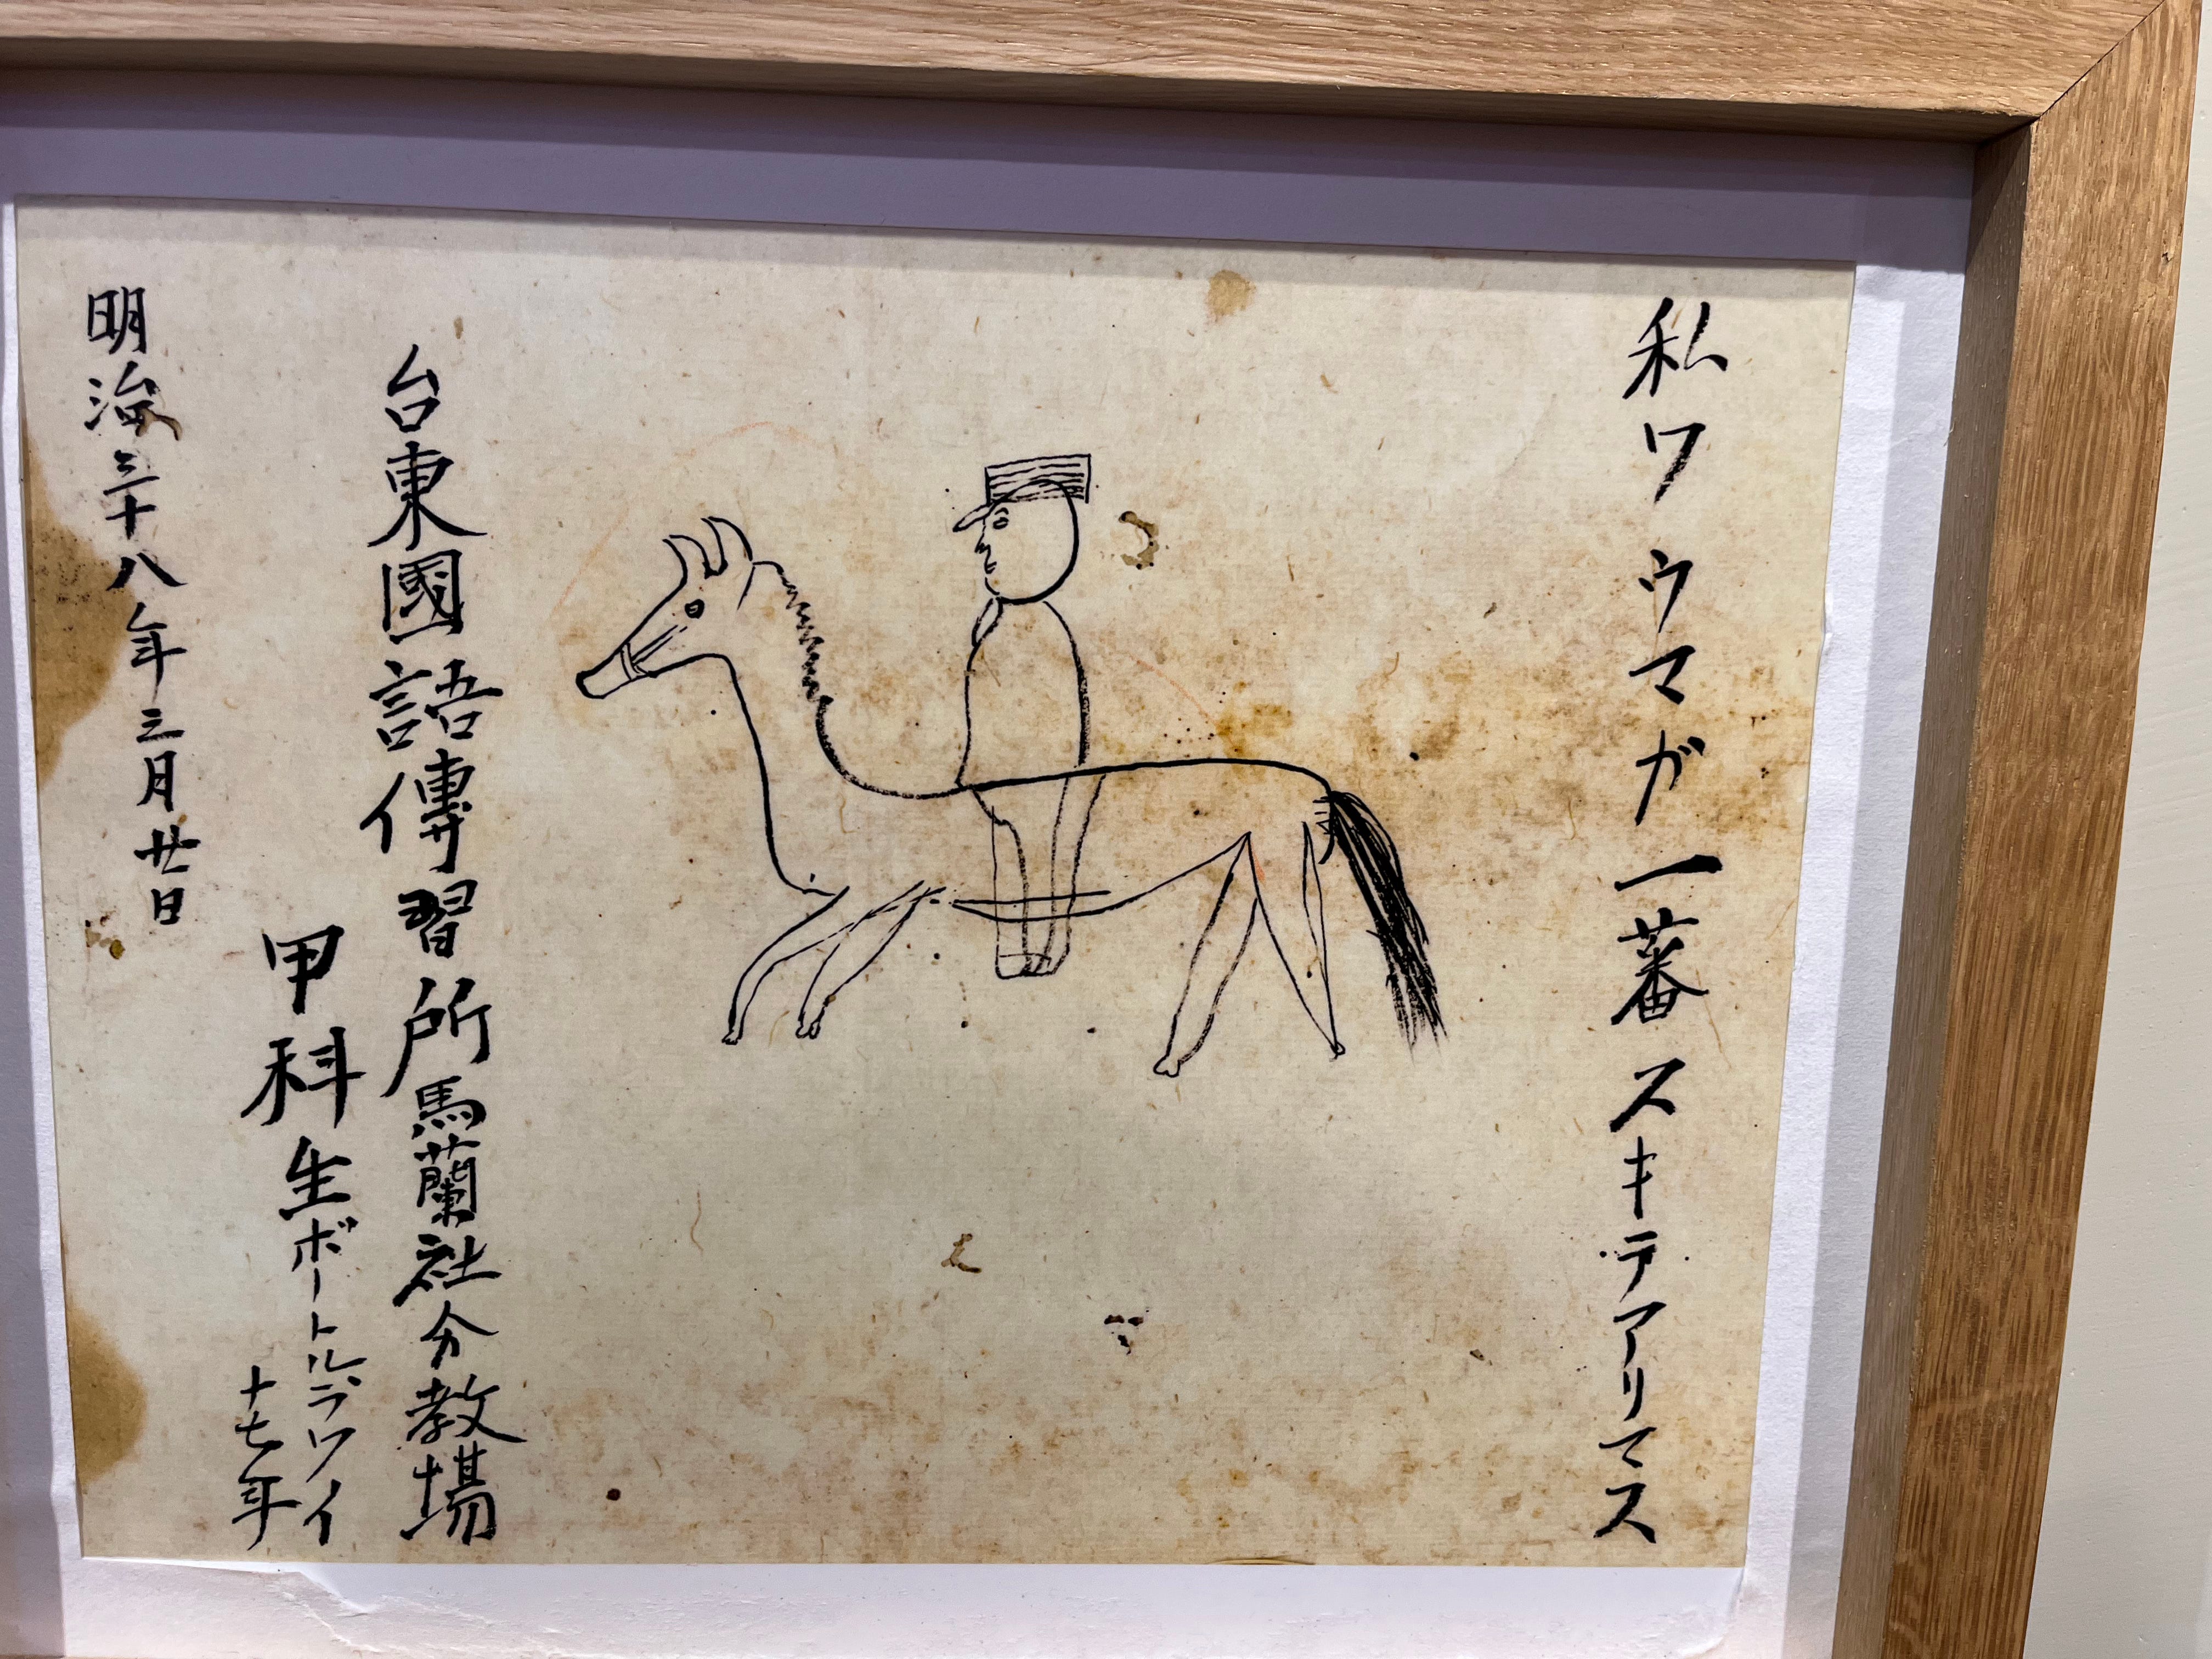 私ワウマガ一蕃スキテアリマス
台東國語傳習所馬蘭社分教場
甲科生ボートルブラワイ
十七年
明治三十八年三月廿日